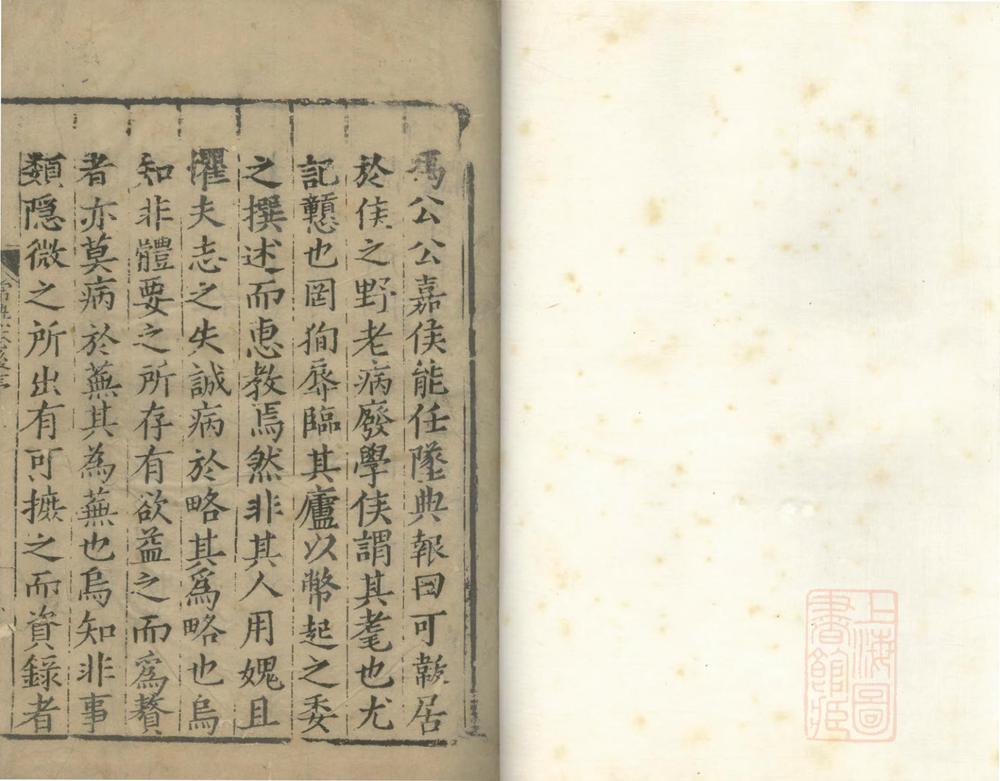 馮公公嘉侯能任墜典報曰可歝居
於侯之野老病廢學侯謂其耄也尤
記戇也罔徇辱臨其廬以幣起之委
之撰述而惠教焉然非其人用媿且
懼夫志之失誠病於略其爲略也烏
知非體要之所存有欲益之而爲贅
者亦莫病於蕪其為蕪也烏知非事
類隱微之所出有可摭之而資錄者
上海圖
書館藏